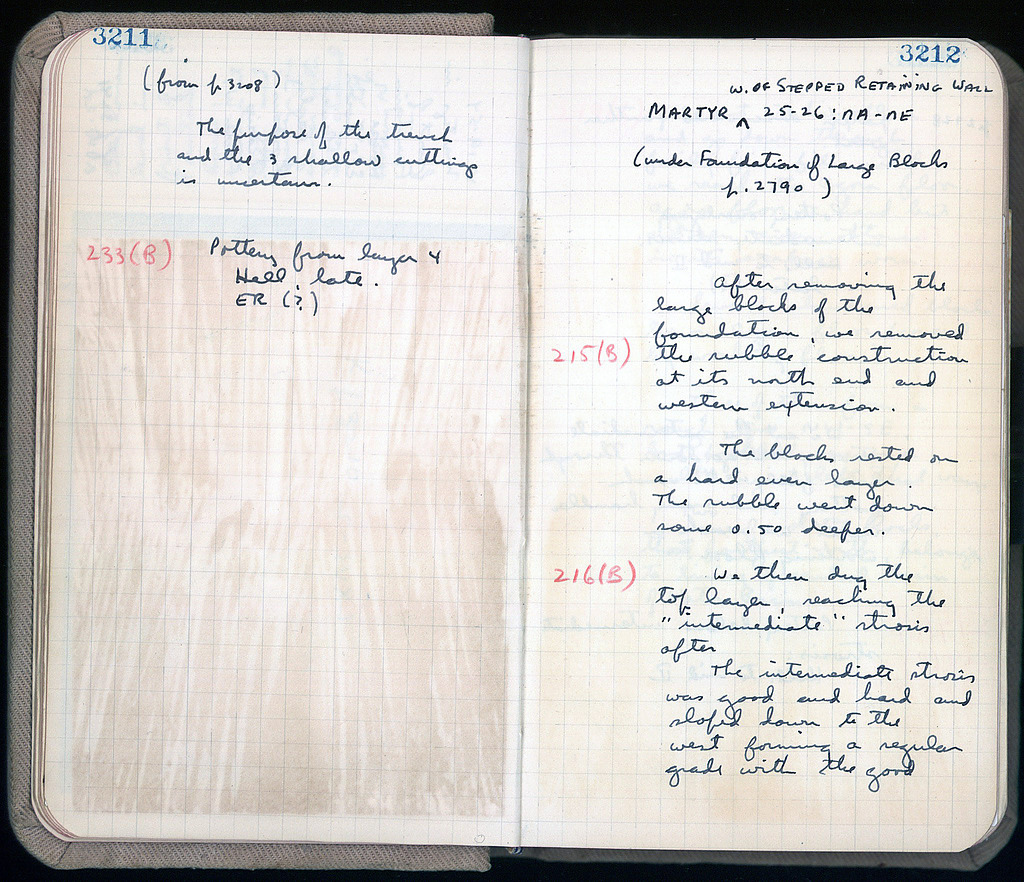 3211
(from p 3208)
The purpose of the trench
and the 3 shallow cuttings
is uncertain.
233(B) Pottery from layer 4
Hell. late.
ER (?)
3212
W. OF STEPPED RETAINING WALL
MARTYR ^ 25-26 : ΠA-ΠE
(under Foundation of Large Blocks
p. 2790 )
After removing the
large blocks of the
foundation, we removed
215(B) the rubble construction
at its north end and
western extension.
The blocks rested on
a hard even layer.
The rubble went down
some 0.50 deeper.
216(B) We then dug the
top layer, reaching the
"intermediate" strosis
after
The intermediate strosis
was good and hard and
sloped down to the
west forming a regular
grade with the good